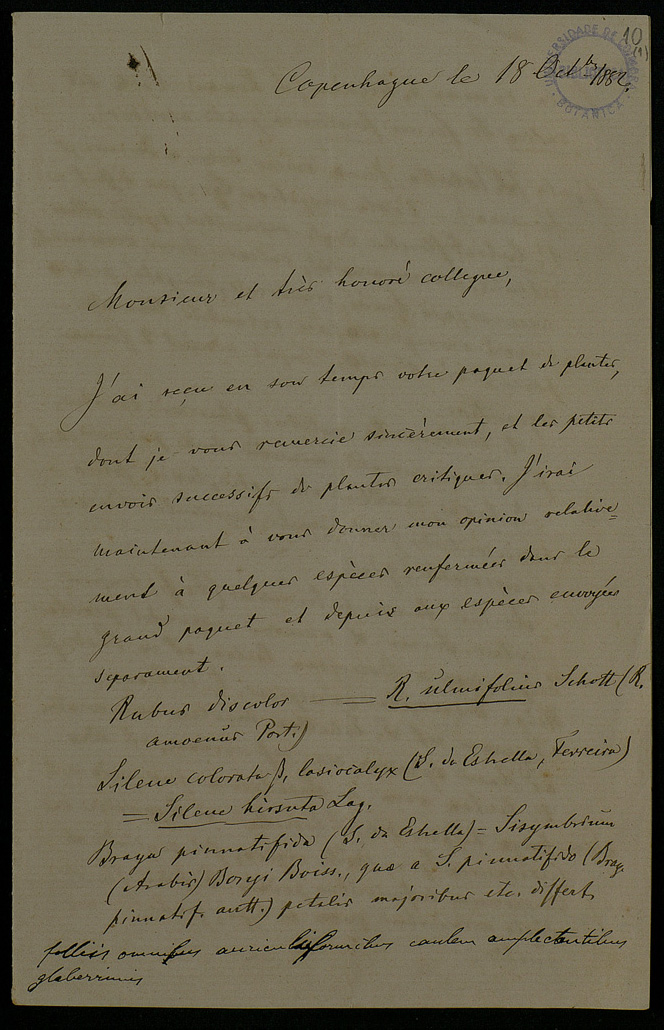 10
(1)
UNIVERSIDADE DE COIMBRA
BOTANICA
Copenhague le 18 Octbr 1882.
Monsieur et très honoré collegue,
J'ai reçu en son temps votre paquet de plantes,
dont je vous remercie sincèrement, et les petits
envois successifs de plantes critiques. J'irai
maintenant à vous donner mon opinion relative=
ment à quelques espèces renfermées dans le
grand paquet et depuis aux espèces envoyées
separament.
Rubus discolor — = R. ulmifolius Schott (R.
amoenus Port.)
Silene colorata β. lasiocalyx (S. da Estrella, Ferreira)
= Silene hirsuta Lag.
Braya pinnatifida (S. da Estrella) = Sisymbrium
(Arabis) Boryi Boiss., quæ a S. pinnatifido (Bray.
pinnatif. autt.) petalis majoribus etc. differt
foliis omnibus auriculiformibus caulem amplectentibus
glaberrimis